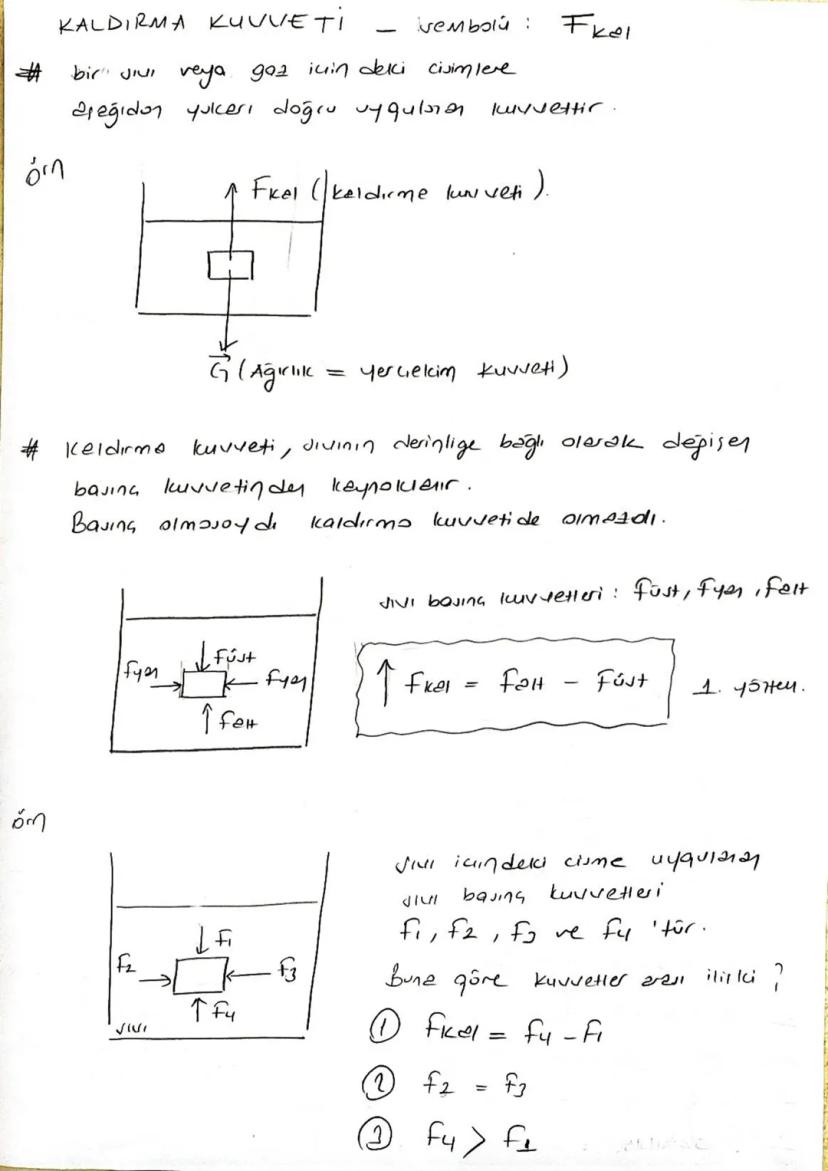 KALDIRMA KUVVETİ – sembolü : Fkal
# bir sıvı veya gaz içindeki cisimlere
aşağıdan yukarı doğru uygulanan kuvvettir.
örn
Fkal (kaldırma kuvveti).
G (Ağırlık = yerçekim kuvveti)
# Kaldırma kuvveti, sıvının derinliğe bağlı olarak değişen
basınç kuvvetinden kaynaklanır.
Basınç olmasaydı kaldırma kuvveti de olmazdı.
sıvı basınç kuvvetleri : Füst, Fyan, Falt
Füst
Fyan
Fyan
Falt
↑ Fkal = Falt – Füst
1. yöntem.
örn
sıvı içindeki cisme uygulanan
sıvı basınç kuvvetleri
F1, F2, F3 ve F4 'tür.
Buna göre kuvvetler arası ilişki ?
F1
F2
F3
F4
sıvı
① Fkal = F4 – F1
② F2 = F3
③ F4 > F1